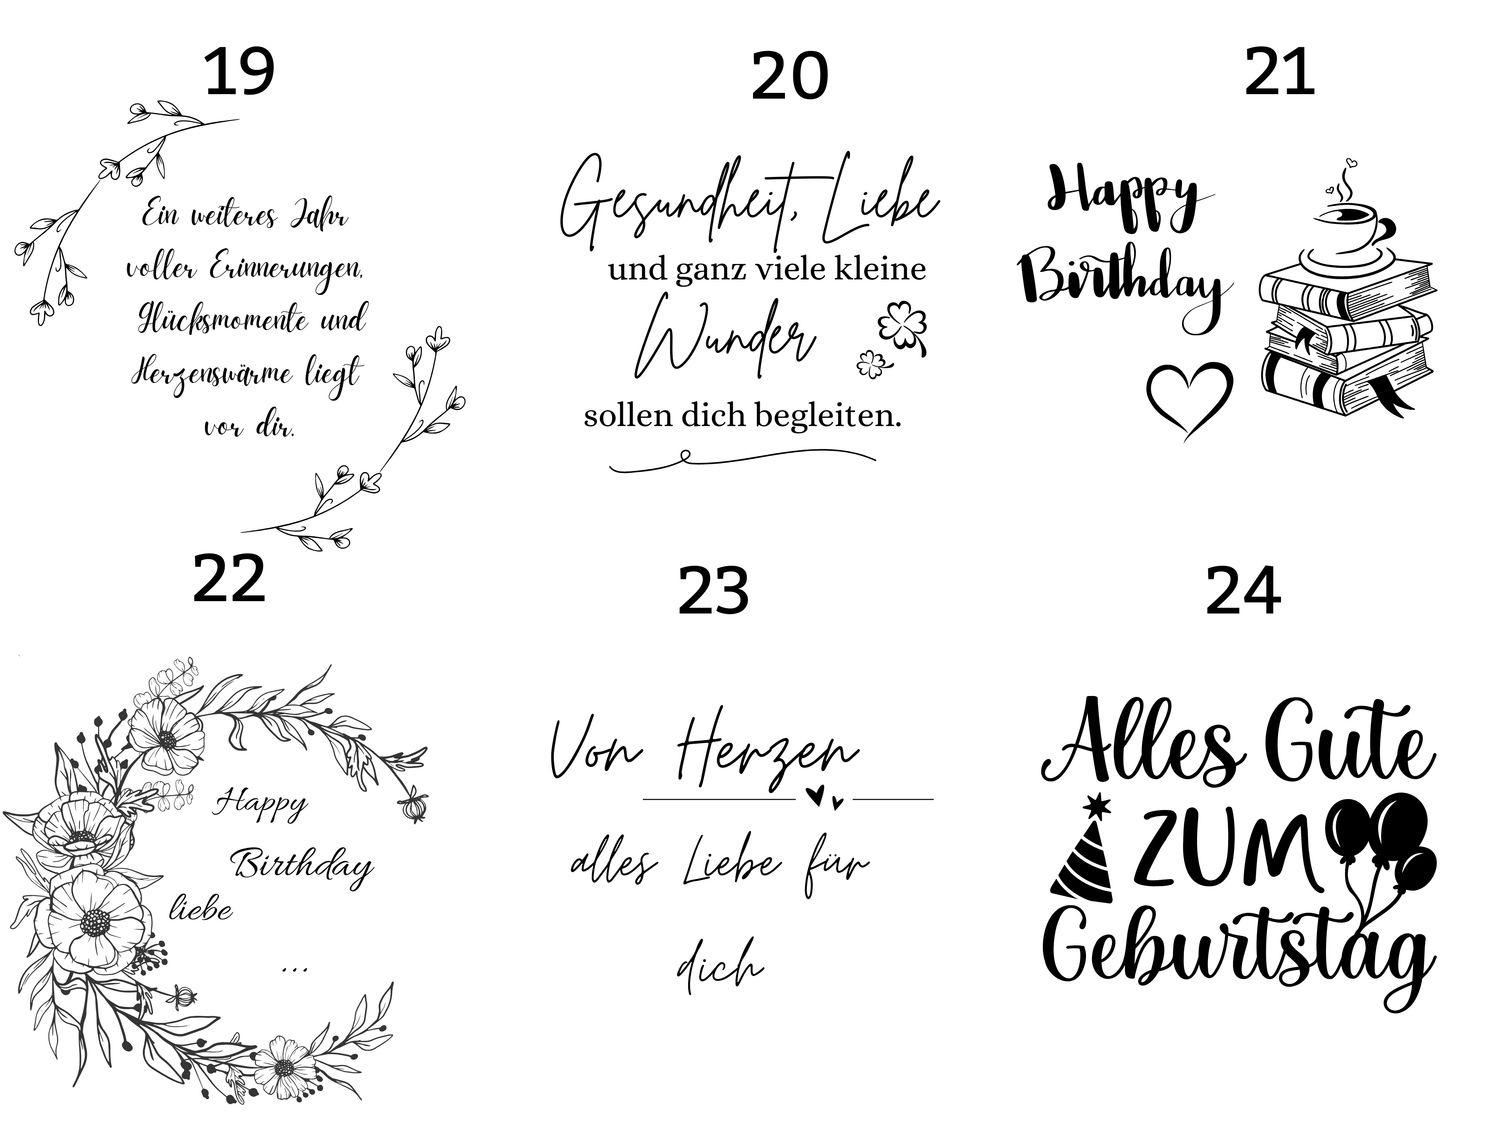 19
Ein weiteres Jahr
voller Erinnerungen,
Glücksmomente und
Herzenswärme liegt
vor dir.
20
Gesundheit, Liebe
und ganz viele kleine
Wunder
sollen dich begleiten.
21
Happy
Birthday
22
Happy
Birthday
liebe
...
23
Von Herzen
alles Liebe für
dich
24
Alles Gute
ZUM
Geburtstag